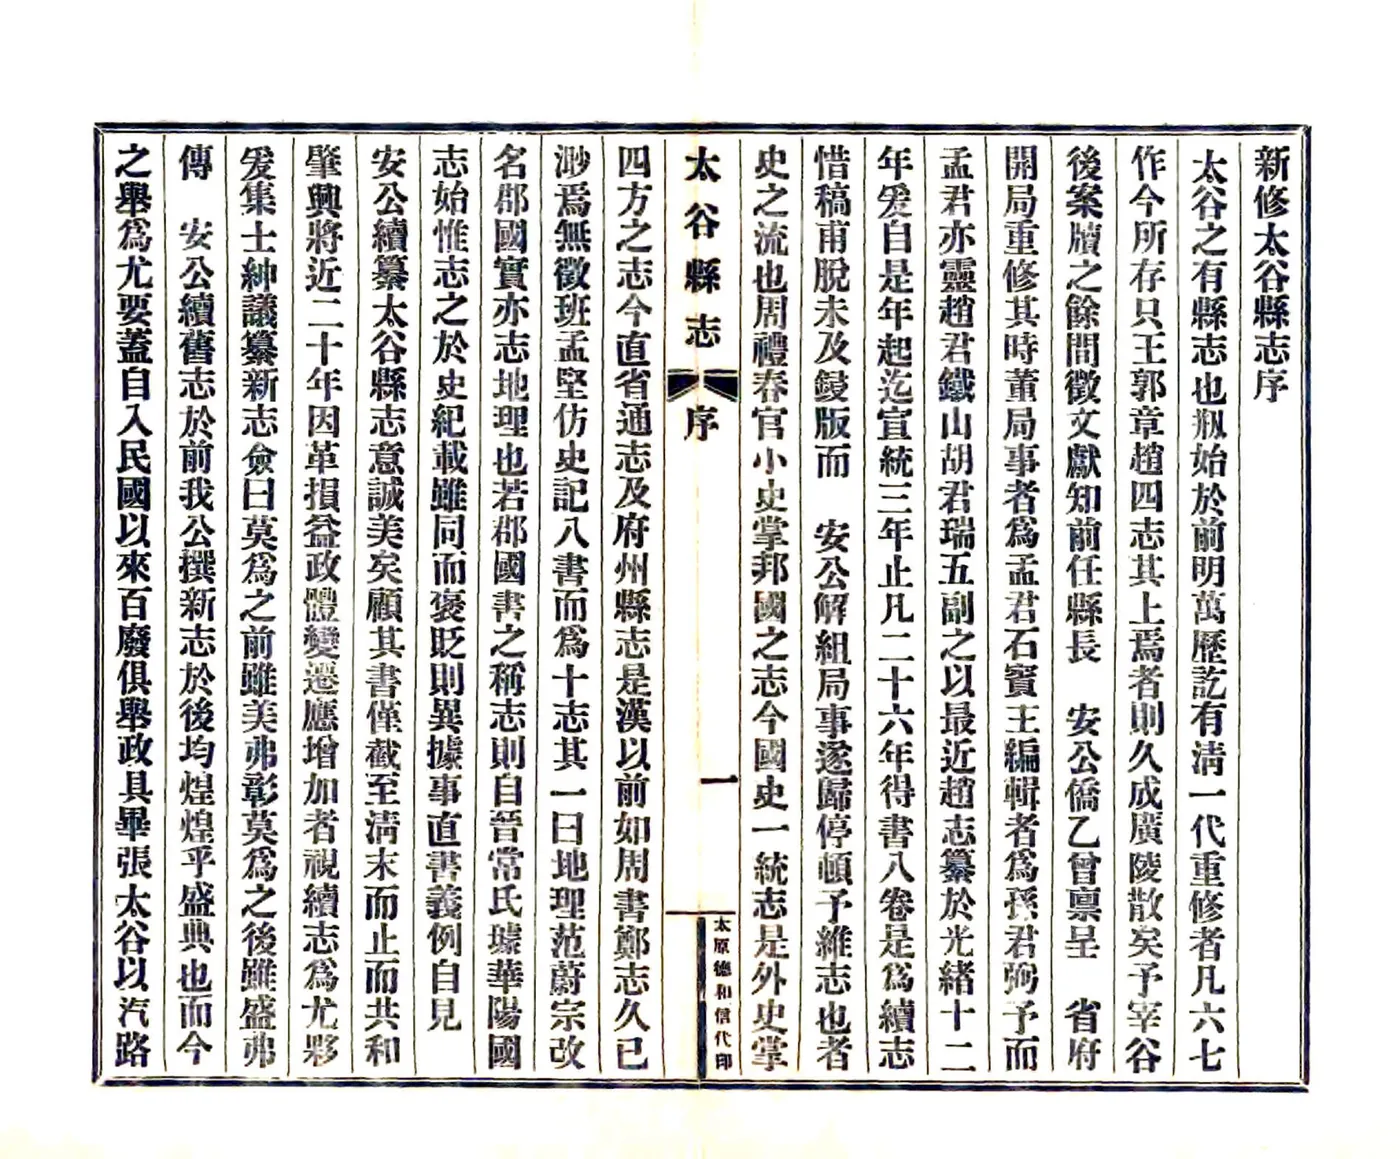 新修太谷縣志序
太谷之有縣志也剏始於前明萬歷訖有淸一代重修者凡六七
作今所存只王郭章趙四志其上焉者則久成廣陵散矣予宰谷
後案牘之餘問徵文獻知前任縣長　安公僑乙曾禀呈　省府
開局重修其時董局事者爲孟君石賓王編輯者爲孫君弼予而
孟君亦靈趙君鐵山胡君瑞五副之以最近趙志纂於光緒十二
年爰自是年起迄宣統三年止凡二十六年得書八卷是爲續志
惜稿甫脫未及鋟版而　安公解組局事遂歸停頓予維志也者
史之流也周禮春官小史掌邦國之志今國史一統志是外史掌
太谷縣志　序　一
太原德和信代印
四方之志今直省通志及府州縣志是漢以前如周書鄭志久已
渺焉無徵班孟堅仿史記八書而爲十志其一曰地理范蔚宗改
名郡國實亦志地理也若郡國書之稱志則自晉常氏璩華陽國
志始惟志之於史紀載雖同而褒貶則異據事直書義例自見
安公續纂太谷縣志意誠美矣顧其書僅截至淸末而止而共和
肇興將近二十年因革損益政體變遷應增加者視續志爲尤夥
爰集士紳議纂新志僉曰莫爲之前雖美弗彰莫爲之後雖盛弗
傳　安公續舊志於前我公撰新志於後均煌煌乎盛典也而今
之舉爲尤要蓋自入民國以來百廢俱舉政具畢張太谷以汽路